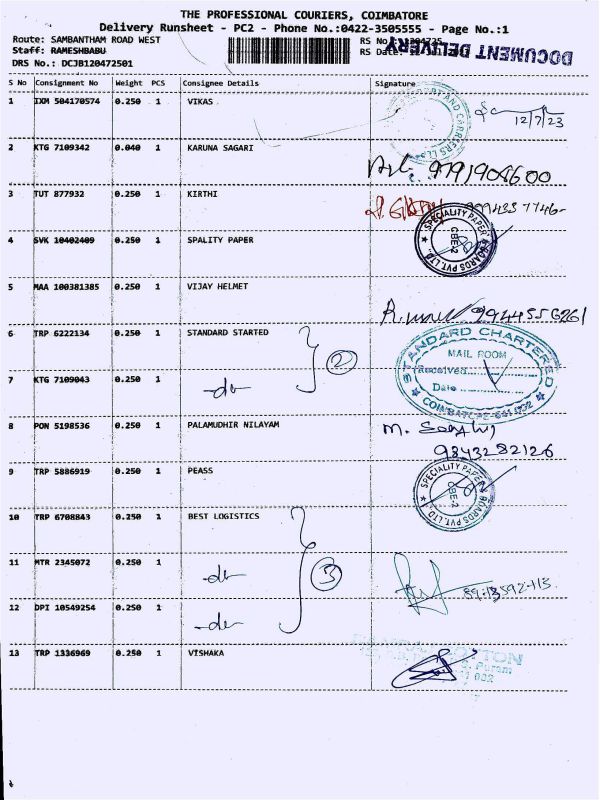 THE PROFESSIONAL COURIERS, COIMBATORE
Delivery Runsheet - PC2 - Phone No.:0422-3505555 - Page No.:1
Route: SAMBANTHAM ROAD WEST
Staff: RAMESHBABU
RS No
RS Date:
DOCUMENT DELIVERY
DRS No.: DCJB120472501
S No Consignment No Weight PCS Consignee Details Signature
1 IXM 504170574 0.250 1 VIKAS
12/7/23
2 KTG 7109342 0.040 1 KARUNA SAGARI
9791904600
3 TUT 877932 0.250 1 KIRTHI
4 SVK 10402409 0.250 1 SPALITY PAPER
SPECIALITY PAPER BOARDS PVT. LTD.
CBE-2
5 MAA 100381385 0.250 1 VIJAY HELMET
6 TRP 6222134 0.250 1 STANDARD STARTED
2
STANDARD CHARTERED
MAIL ROOM
Received
Date
7 KTG 7109043 0.250 1
8 PON 5198536 0.250 1 PALAMUDHIR NILAYAM
9843282126
9 TRP 5886919 0.250 1 PEASS
SPECIALITY PAPER BOARDS PVT. LTD.
CBE-2
10 TRP 6708843 0.250 1 BEST LOGISTICS
3
11 MTR 2345072 0.250 1
12 DPI 10549254 0.250 1
13 TRP 1336969 0.250 1 VISHAKA